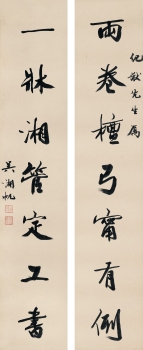 兩卷檀弓甯有例
先生屬
一牀湘管定工書
吳湖帆